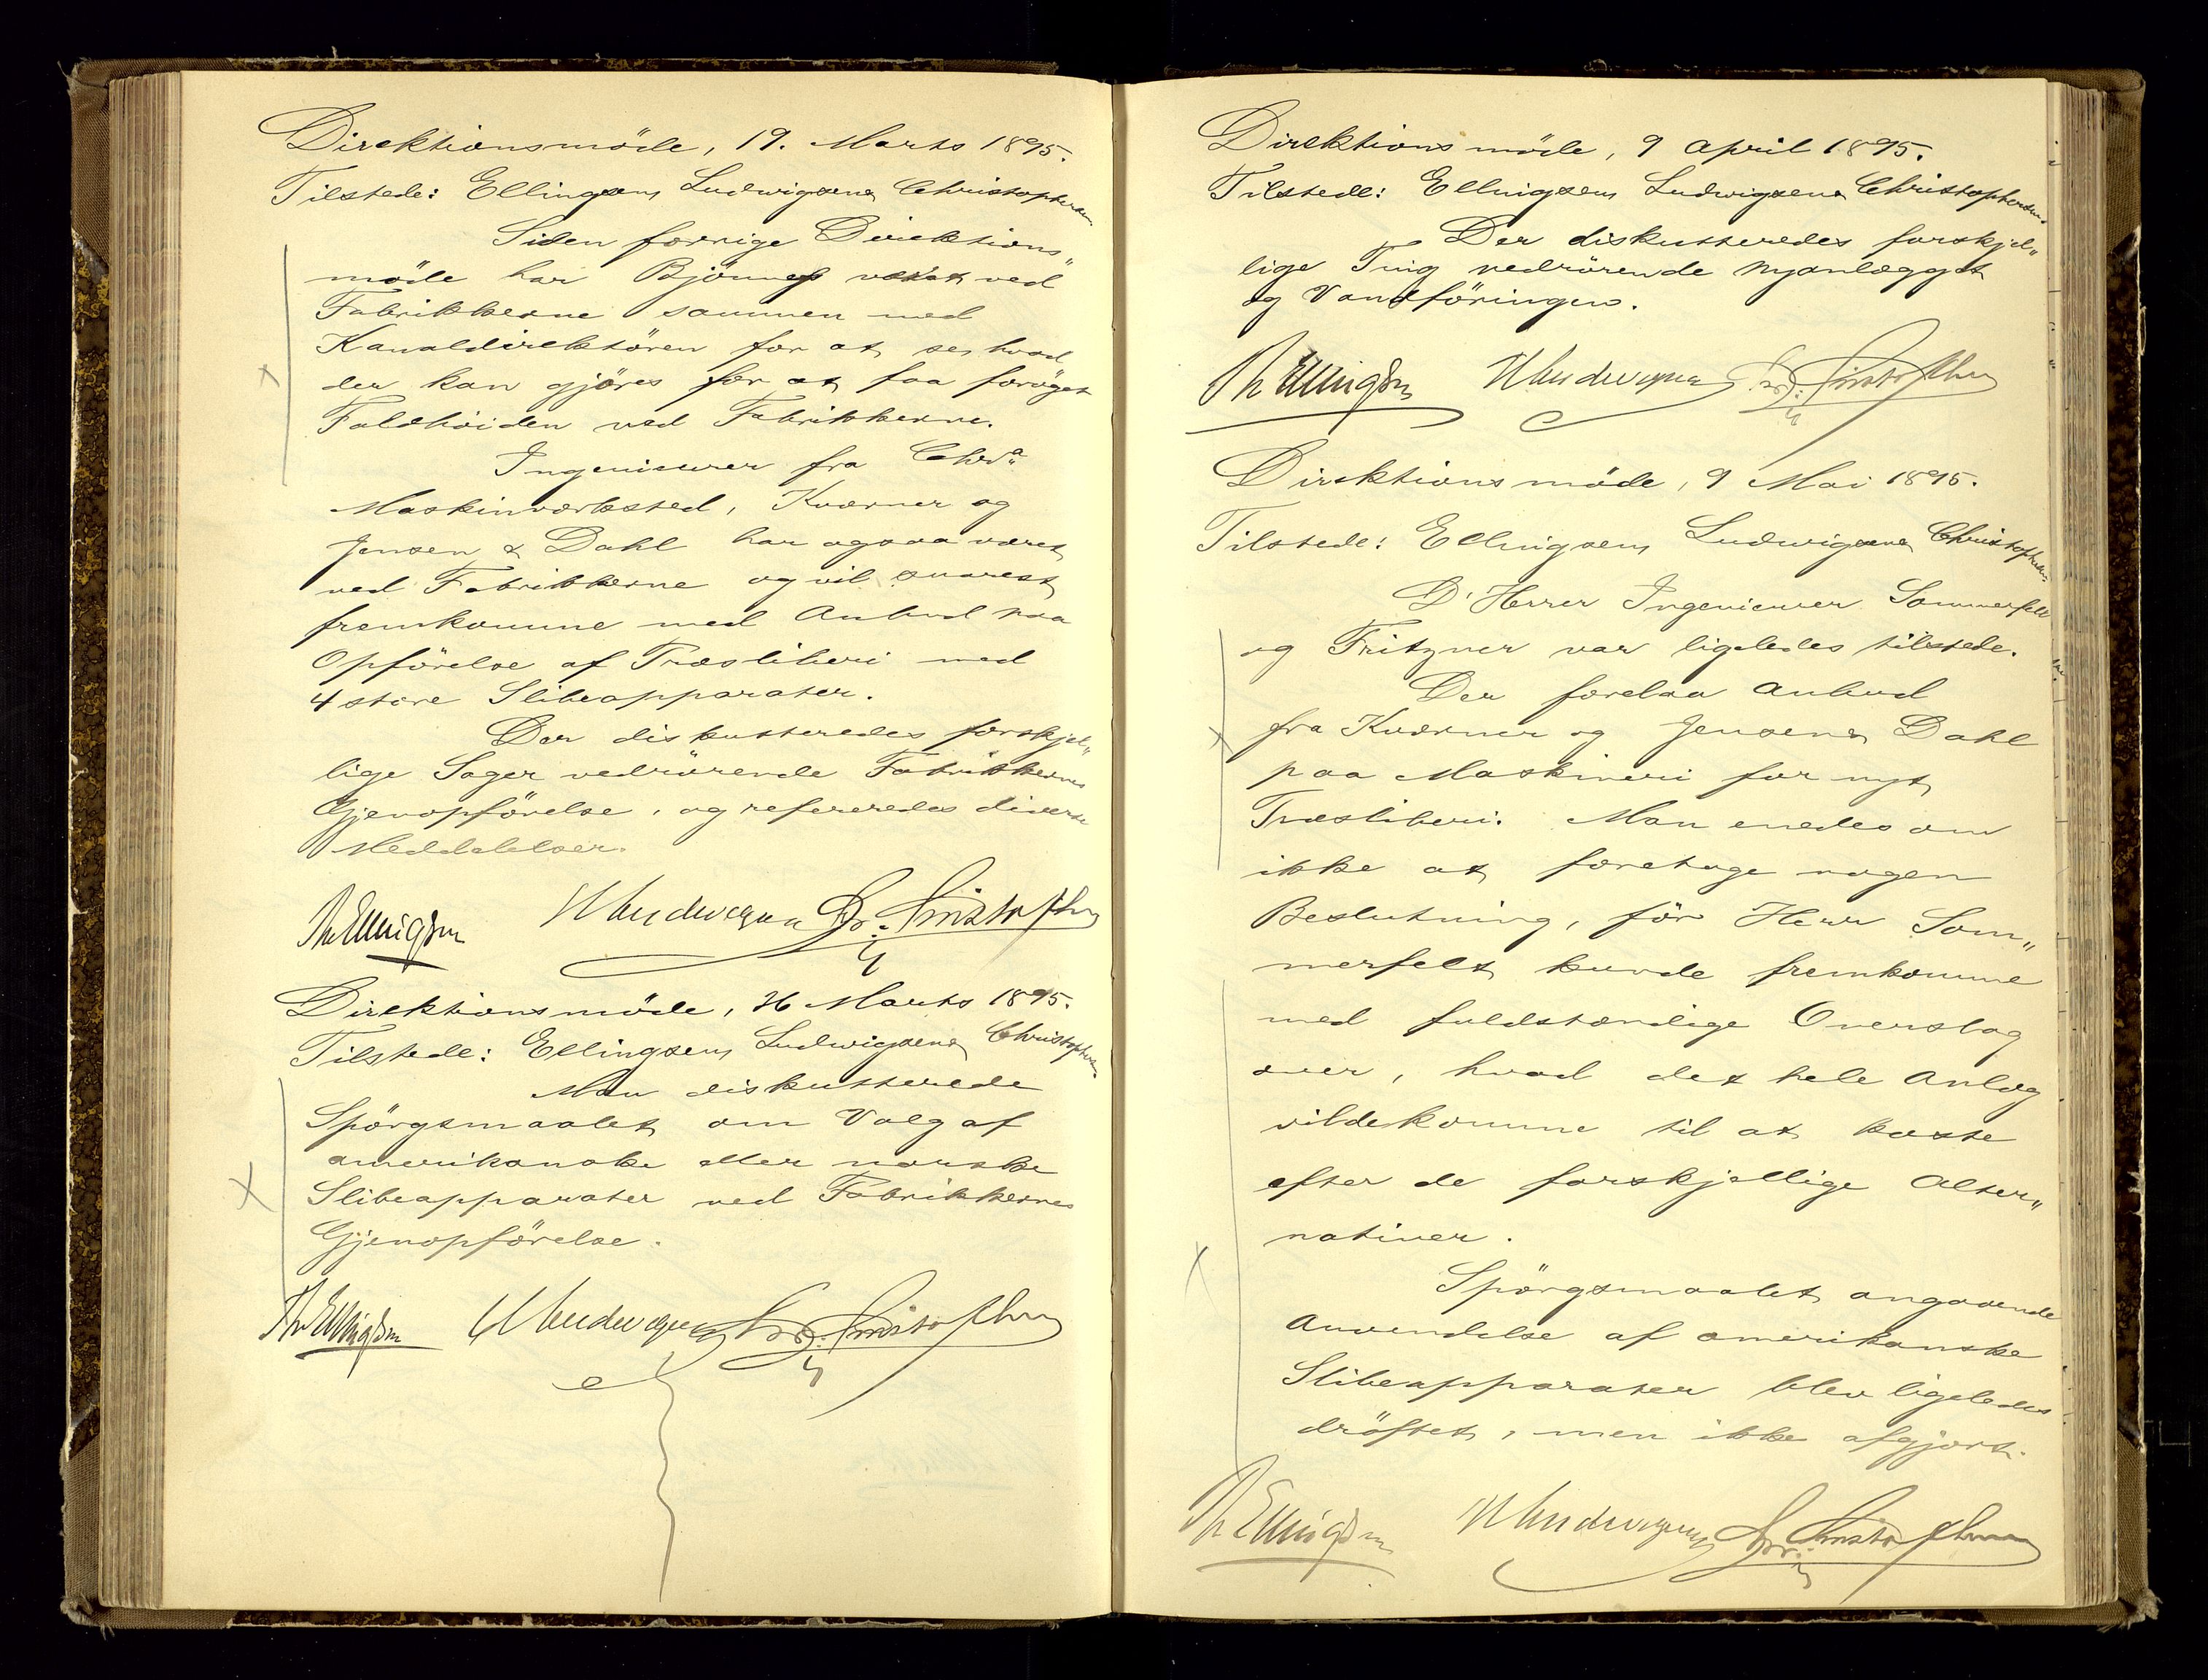 Direktionsmöde, 19. Marts 1895.
Tilstede: Ellingsen, Ludwigsen & Christophersen
Siden forrige Direktions"
möde har Bjönness været ved
Fabrikkerne sammen med
Kanaldirektören for at se, hvad
der kan gjöres for at faa foröget
Faldhöiden ved Fabrikkerne.
Ingenieurer fra Chra
Maskinværksted, Kværner og
Jensen & Dahl har ogsaa været
ved Fabrikkerne og vil snarest
fremkomme med Anbud paa
Opförelse af Træsliberi med
4 store Slibeapparater.
Der diskutteredes forskjel"
lige Sager vedrörende Fabrikkernes
Gjenopförelse, og refereredes diverse
Meddelelser.
Th Ellingsen W Ludwigsen Chr. Christophersen
Direktionsmöde, 26 Marts 1895.
Tilstede: Ellingsen, Ludwigsen & Christophersen
Man diskutterede
Spörgsmaalet om Valg af
amerikanske eller norske
Slibeapparater ved Fabrikkernes
Gjenopförelse.
Th Ellingsen W Ludwigsen Chr. Christophersen
Direktionsmöde, 9 April 1895.
Tilstede: Ellingsen, Ludwigsen & Christophersen
Der diskutteredes forskjel"
lige Ting vedrörende Nyanlægget
og Vandföringen.
Th Ellingsen W Ludwigsen Chr. Christophersen
Direktionsmöde, 9 Mai 1895.
Tilstede: Ellingsen, Ludwigsen & Christophersen
D'Herrer Ingenieurer Sommerfelt
og Fritzner var ligeledes tilstede.
Der forelaa Anbud
fra Kværner og Jensen & Dahl
paa Maskineri for nyt
Træsliberi. Man enedes om
ikke at foretage nogen
Beslutning, för Herr Som"
merfelt kunde fremkomme
med fuldstændige Overslag
over, hvad det hele Anlæg
vilde komme til at koste
efter de forskjellige Alter"
nativer.
Spörgsmaalet angaaende
Anvendelse af amerikanske
Slibeapparater blev ligeledes
dröftet, men ikke afgjort.
Th Ellingsen W Ludwigsen Chr. Christophersen